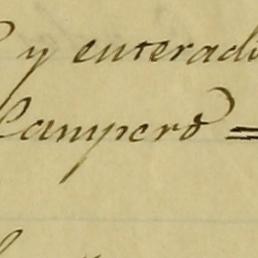 y enterado
Campero =